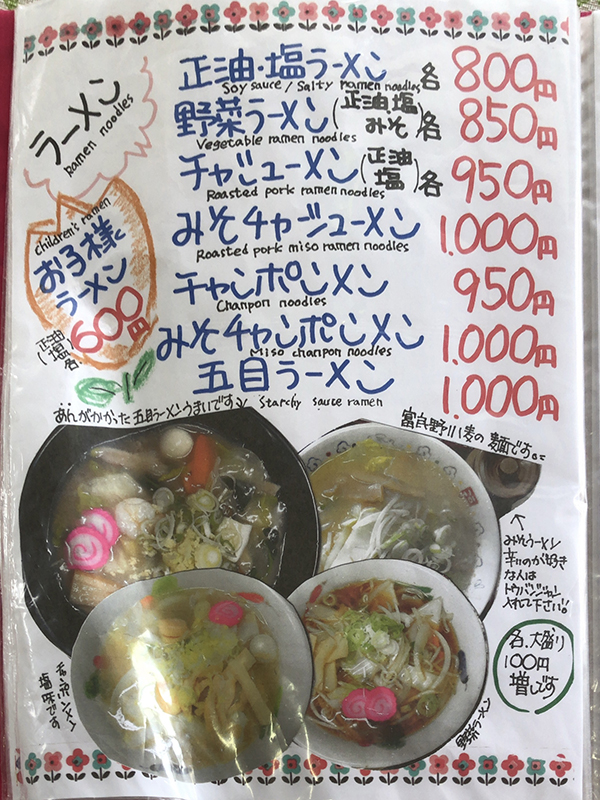 ラーメン
Ramen noodles
正油・塩ラーメン 各 800円
Soy sauce / Salty ramen noodles
野菜ラーメン(正油 塩 みそ)各 850円
Vegetable ramen noodles
チャシューメン(正油 塩)各 950円
Roasted pork ramen noodles
みそチャシューメン 1.000円
Roasted pork miso ramen noodles
チャンポンメン 950円
Chanpon noodles
みそチャンポンメン 1.000円
Miso chanpon noodles
五目ラーメン 1.000円
Starchy sauce ramen
children's ramen
お子様
ラーメン
600円
(正油 塩 各)
あんがかかった五目ラーメンうまいです
富良野小麦の麺です。
↑
みそラーメン
辛いのが好き
な人は
トウバンジャン
入れて下さい!!
各、大盛り
100円
増しです
チャンポンメン
塩味です
野菜ラーメン